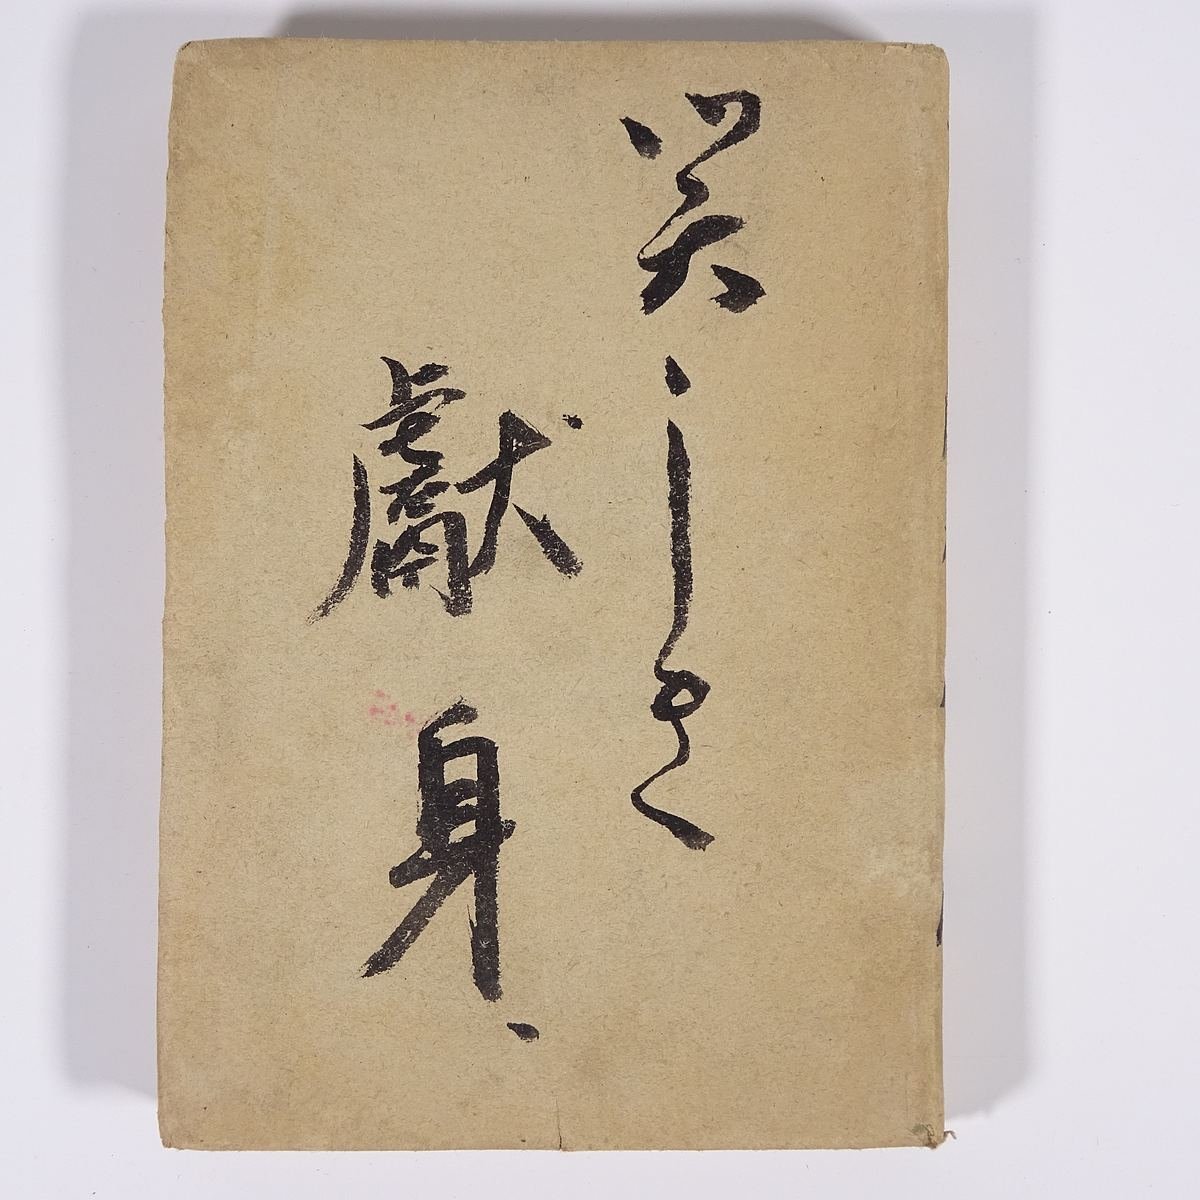 美しき
獻身、